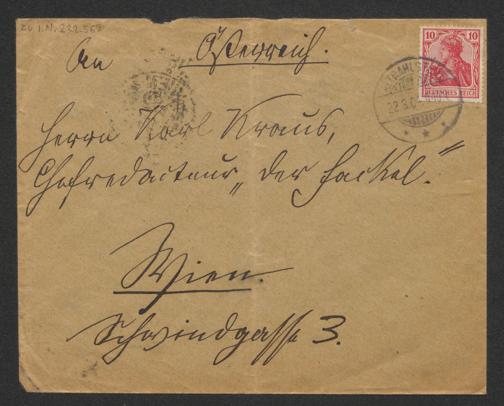 ZU I.N. 232.568
Österreich.
An
10 10
DEUTSCHES REICH
Herrn Karl Kraus,
Chefredacteur „der Fackel."
Wien.
Schwindgasse 3.